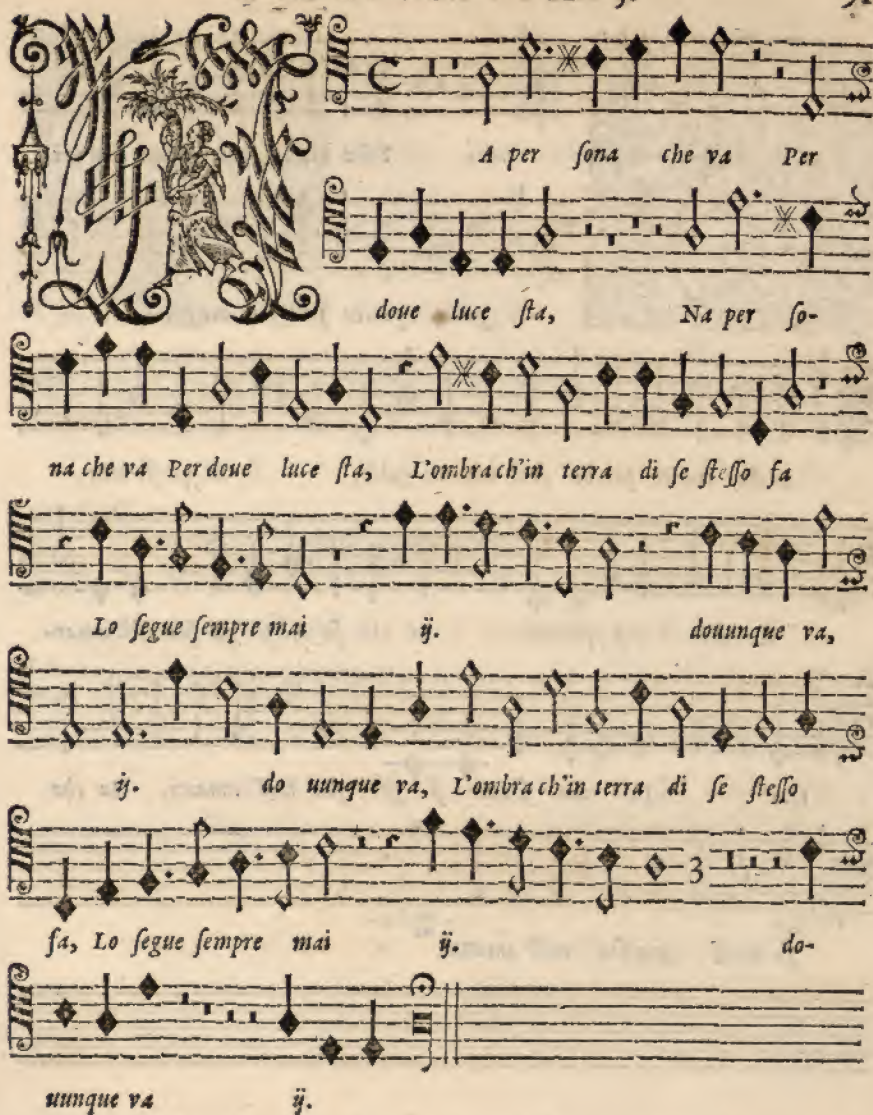 A per ſona che va Per
doue luce ſta, Na per ſo-
na che va Per doue luce ſta, L'ombra ch'in terra di ſe ſteſſo fa
Lo ſegue ſempre mai ij. douunque va,
ij. do uunque va, L'ombra ch'in terra di ſe ſteſſo
fa, Lo ſegue ſempre mai ij. do-
3
uunque va ij.